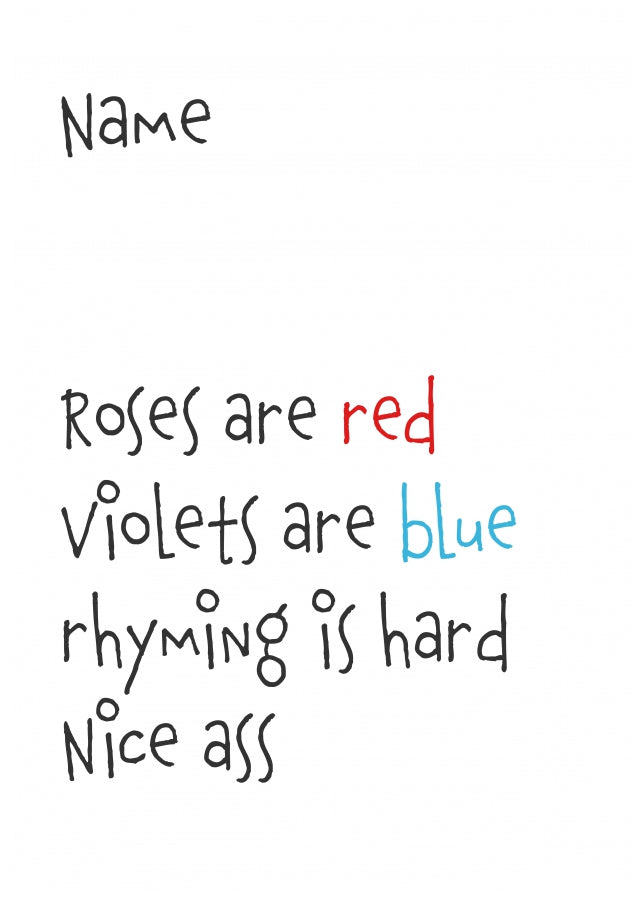 Name
Roses are red
Violets are blue
rhyming is hard
Nice ass